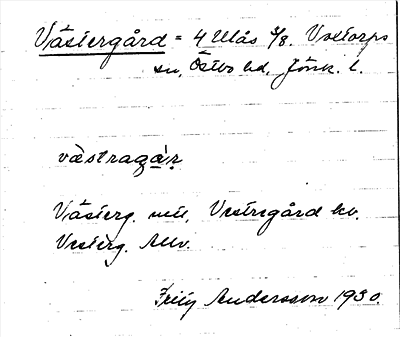 Västergård = 4 Ulås 5/8. Voxtorps
sn, Östbo hd, Jönk. l.
vàstragár
Västerg. mtl, Vestregård kv.
Vesterg. Allv.
Andersson 1930